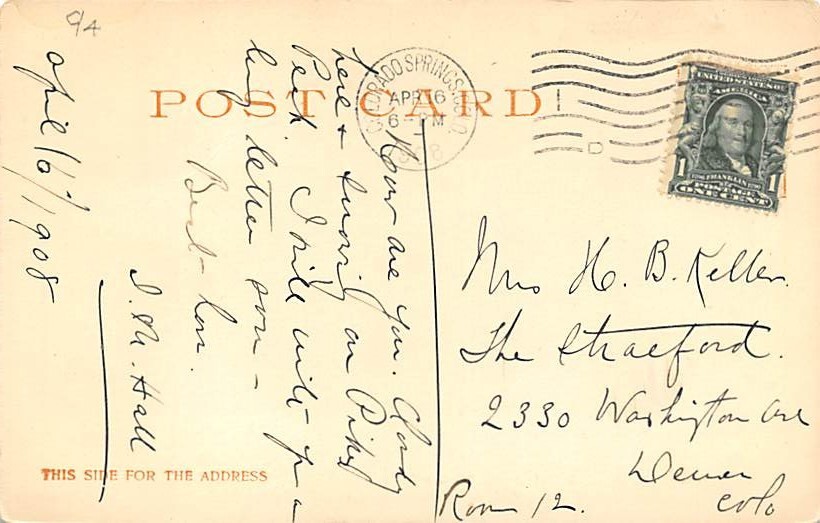 POST CARD
COLORADO SPRINGS, COLO.
APR 16
6 - PM
1908
D
UNITED STATES OF
AMERICA
1 FRANKLIN 1
POSTAGE
ONE CENT
How are you. Cloudy
here & snowing on Pikes
Peak. I will write you a
long letter soon -
Best - love.
I. M. Hall
April 16th/1908
Mrs H. B. Keller.
The Stratford.
2330 Washington Ave
Denver
Colo
Room 12.
THIS SIDE FOR THE ADDRESS